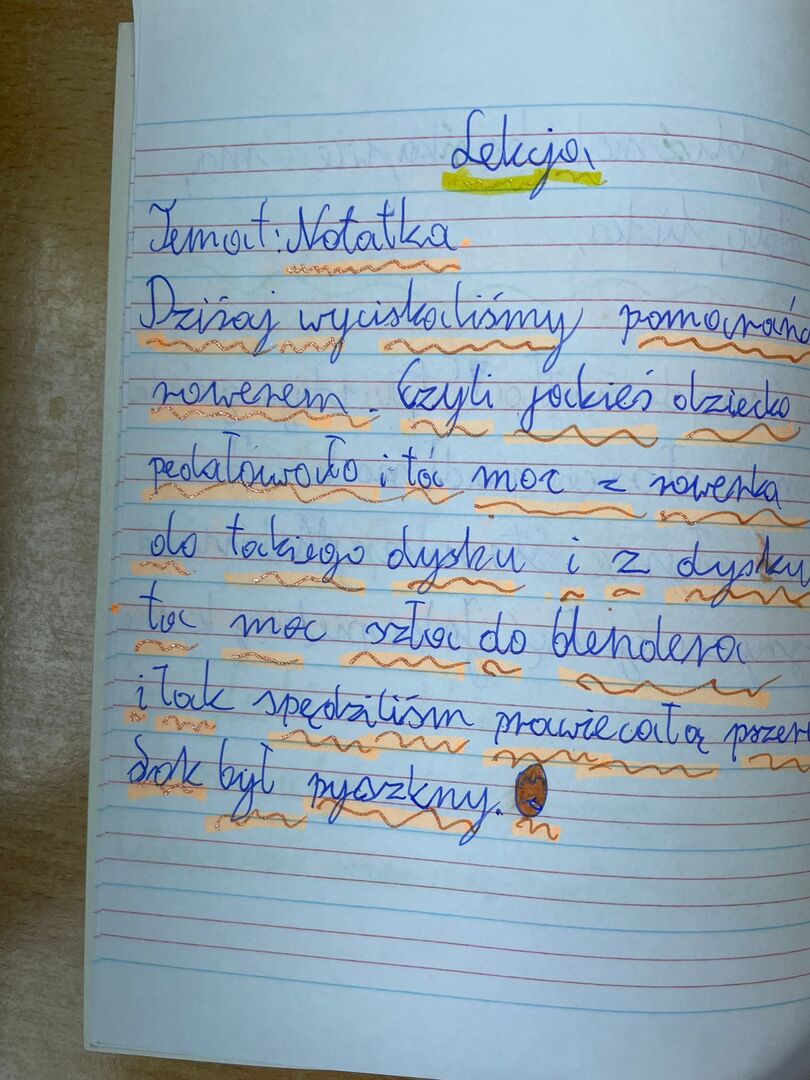 Lekcja
Temat: Notatka
Dziśaj wyciskaliśmy pomarańc
rowerem. Czyli jakieś dziecko
pedałowało i ta moc z rowerka
do takiego dysku i z dysku
ta moc szła do blendera
i tak spędziliśm prawie całą przer
Sok był pyszkny.